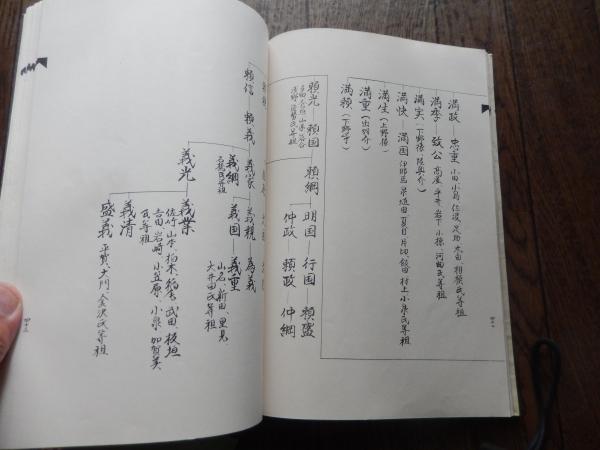 満政―忠重 小田、小島、佐渡、足助、木田、相模氏等祖
満季―致公 高屋、平井、岩下、小椋、河田氏等祖
満実（下野權陸奥介）
満快―満国
満生（上野權
満重（出羽介
満頼（下野守）
頼光―頼国―頼綱―明国―行国―頼盛
仲政―頼政―仲綱
頼信―頼義―義家―義親―為義
義国―義重
山名、新田、里見、
大井田氏等祖
義綱
石橋氏等祖
義光―義業
佐竹、山本、柏木、稲木、武田、板垣
吉田、岩崎、小笠原、小泉、加賀美
氏等祖
義清
盛義 平賀、大内、金沢氏等祖